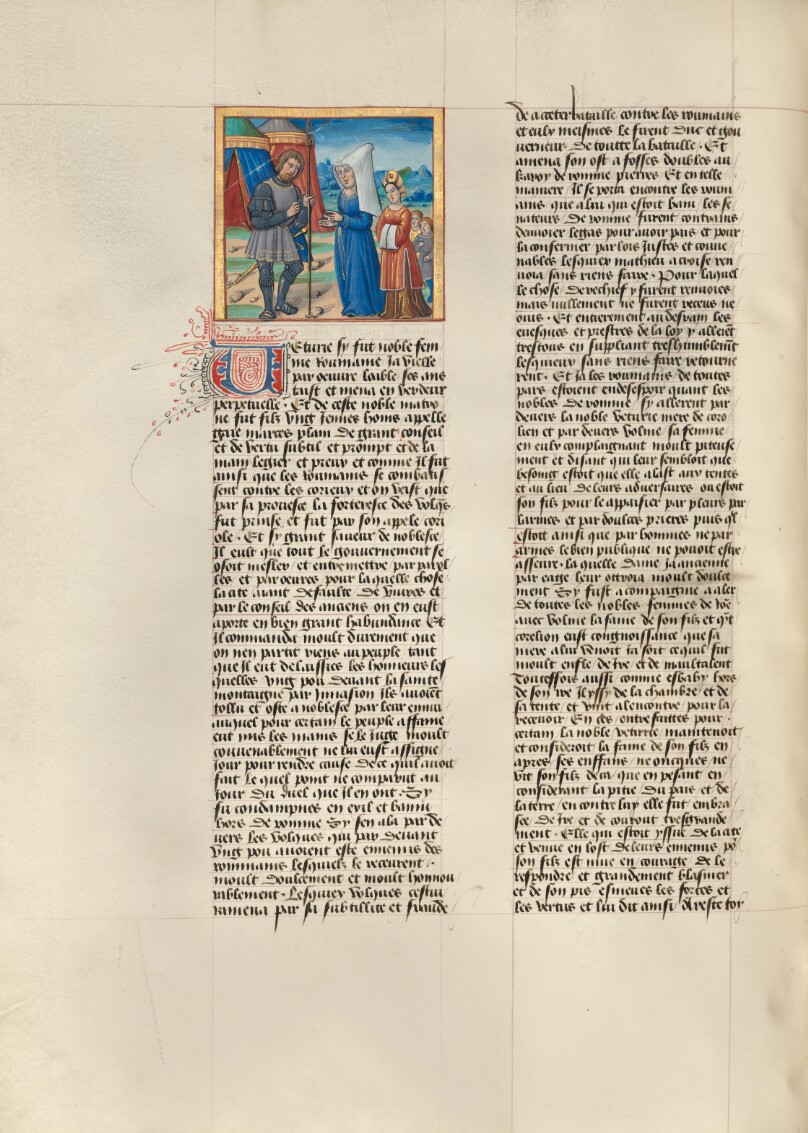 Veturie sy fut noble fem
me Roumaine ja vielle
par oeuvre loable ses ans
tarst et mena en verdeur
perpetuelle. Et de ceste noble matro
ne fut filz ung jennes homs appelle
marces plain de grant conseil
et de vertu subtil et prompt et de la
main legier et preux et comme il fut
ainsi que les Roumains se combatis
sent contre les corieux et on veist que
par sa prouesse la forteresse des volsqs
fut prinse et fut par son appele cori
ole. Et sy grant faveur de noblesse
Il eult que tout le gouvernement se
osoit mesler et entremettre par parol
les et par oeuvres pour laquelle chose
la cite aiant deffaulte de vivres et
par le conseil des anciens on en eust
aporte en bien grant habundance Et
Il commanda moult durement que
on nen partit riens au peuple tant
que il eut delaissies les honneurs les
quelles ung pou devant la sainte
montaigne par Invasion Ils avoient
tollu et oste a noblesse par leur ennui
auquel pour certain le peuple affame
eut mis les mains se le juge moult
convenablement ne lui eust assigne
jour pour rendre cause de ce quil avoit
fait Le quel point ne comparut au
jour du quel que il en ont. Sy
fu condampnes en exil et banni
hors de romme Sy sen ala par de
vers les volsques qui par devant
ung pou avoient este ennemis des
rommains lesquels le recurent
moult doulcement et moult honnou
rablement. Lesquiex volques cestui
ramena par sa subtillite et fraude
de acceter bataille contre les roumains
et eulx meismes le firent duc et gou
verneur de toutte la bataille. Et
amena son ost a fosses doubles au
de romme pierres Et en telle
maniere Il se porta encontre les roum
ains que a lui qui estoit bani les se
nateurs de romme furent contrains
denvoier legas pour avoir pais et pour
la confermer par lois justes et conve
nables lesquiex mathieu a croise ren
voia sans riens faire. Pour laquel
le chose derechief y furent renvoies
mais nullement ne furent receus ne
ouis. Et entierement au desrain les
evesques et prestres de la loy y allerent
trestous en suppliant treshumblement
lesquieux sans riens faire retourne
rent. Et ja les roumains de toutes
pars estoient en desespoir quant les
nobles de romme sy allerent par
devers la noble veturie mere de coro
lien et par devers volme sa femme
en eulx complaignant moult piteuse
ment et disant qui leur sembloit que
besoing estoit que elle alast aux tentes
et au lieu de leurs adversaires ou estoit
son filz pour le appaisier par pleurs par
larmes et par doulces prieres puis ql
estoit ainsi que par hommes ne par
armes le bien publique ne povoit estre
asseure. laquelle dame ja ancienne
par eage leur ottroia moult doulce
ment Sy fust acompaignie a aler
de toutes les nobles femmes de rome
avec volme la fame de son filz et qt
corelion eust congnoissance que sa
mere a lui venoit ja soit ce quil fut
moult enfle de ire et de maultalent
Touttesfois aussi comme esbahy hors
de son ire Il yssy de la chambre et de
sa tente et vint alencontre pour la
recevoir En ces entrefaittes pour
certain la noble veturie maintenoit
et consideroit la fame de son filz en
apres ses enffans ne oncques ne
vit son filz deca que en pesant en
considerant la pitie du pais et de
la terre, en contre luy elle fut embra
see de ire et de courout tresgrande
ment. Elle qui estoit yssue de la cite
et venue en lost de leurs ennemis po
son filz est mue en courage de le
respondre et grandement blasmer
et de son pis esmeues les forces et
les vertus et lui dit ainsi Areste toy